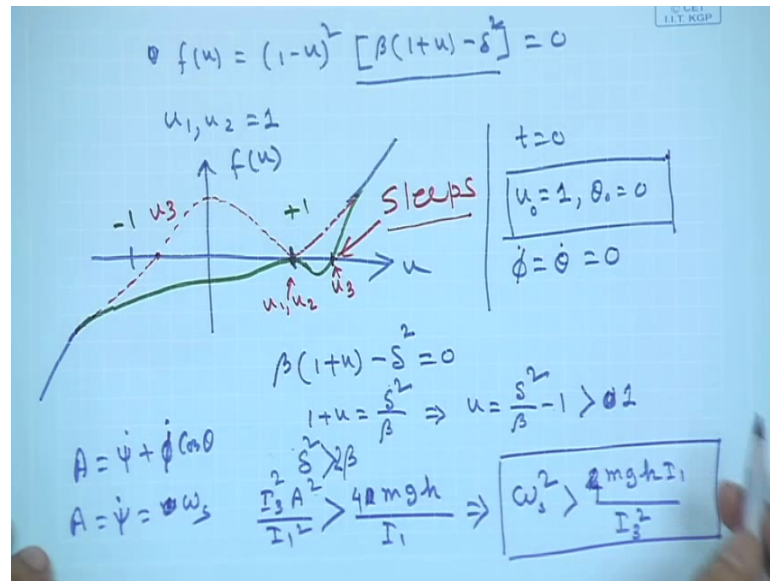 © CET
I.I.T. KGP
f(u) = (1-u)² [β(1+u) - δ²] = 0
u₁, u₂ = 1
f(u)
-1
u₃
+1
sleeps
u
u₁, u₂
u₃
t=0
u₀ = 1, θ₀ = 0
φ̇ = θ̇ = 0
β(1+u) - δ² = 0
1+u = δ²/β ⇒ u = δ²/β - 1 > 1
A = ψ̇ + φ̇ Cosθ
δ² > 2β
A = ψ̇ = ωₛ
I₃² A²/I₁² > 4mgh/I₁ ⇒ ωₛ² > 4mghI₁/I₃²